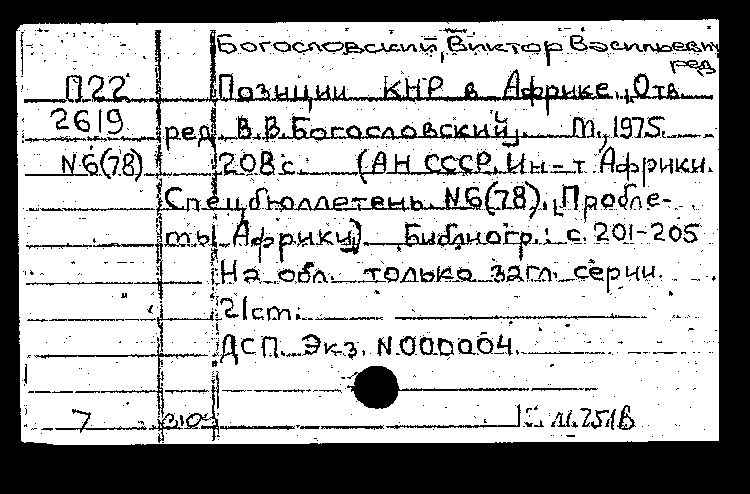 Богословский, Виктор Васильевич
ред
П22 Позиции КНР в Африке. Отв.
2619 ред. В.В.Богословский. М., 1975.
N6(78) 208с. (АН СССР. Ин-т Африки.
Спецбюллетень. N6(78). Пробле-
мы Африки). Библиогр.: с. 201-205
На обл. только загл. серии.
21см.
ДСП. Экз. N000004.
7